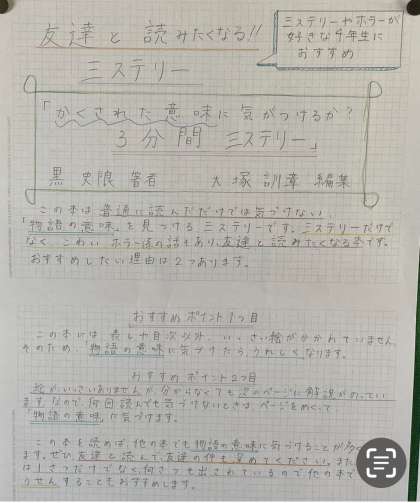 友達と読みたくなる!!
ミステリー
ミステリーやホラーが
好きな4年生に
おすすめ
「かくされた意味に気がつけるか?
3分間ミステリー」
黒 史郎 著者 大塚訓章 編集
この本は普通に読んだだけでは気づけない、
「物語の意味」を見つける、ミステリーです。ミステリーだけで
なく、こわいホラー系の話もあり、友達と読みたくなる本です。
おすすめしたい理由は2つあります。
おすすめポイント1つ目
この本には表しや目次以外、いっさい絵がかかれていません。
そのため、物語の意味に気づけたら、うれしくなります。
おすすめポイント2つ目
絵がいっさいありませんが、分からなくても次のページに解説がのってい
ます。なので、何回読んでも気づけないときは、ページをめくって、
「物語の意味」に気づけます。
この本を読めば、他の本でも物語の意味に気づけることが多く
ます。ぜひ、友達と読んで、友達の仲も深めてください。また
は1さつだけでなく、何さつも出されているので他の本で
りせんすることもおすすめします。